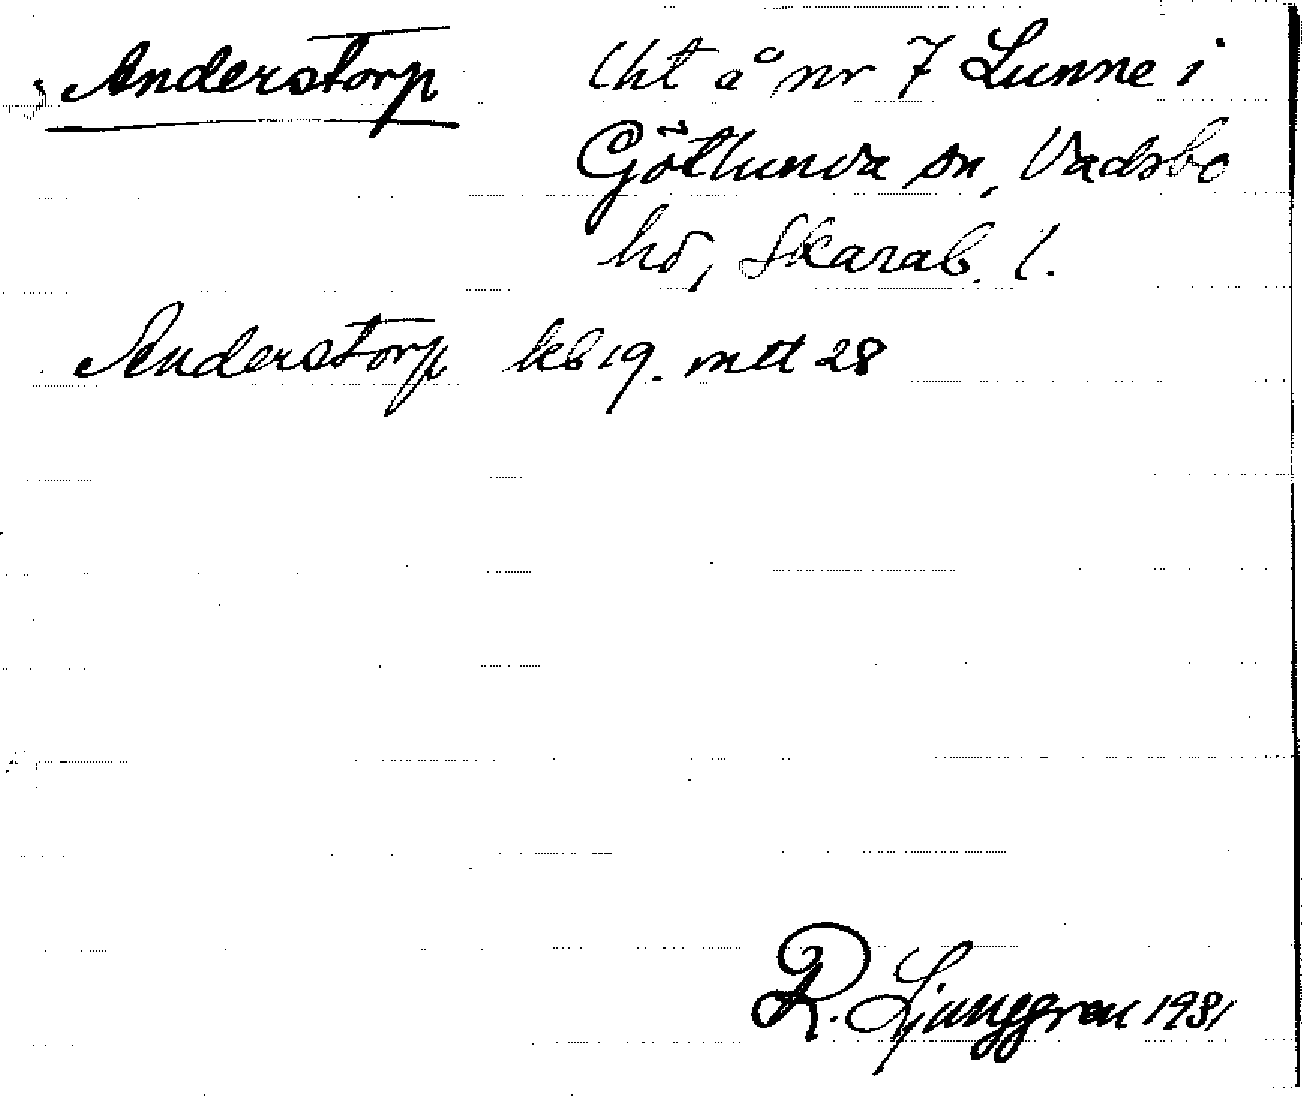 Anderstorp lht å nr 7 Lunne i
Götlunda sn, Vadsbo
hd, Skarab. l.
Anderstorp kb 19. mtl 28
R. Ljunggren 1931